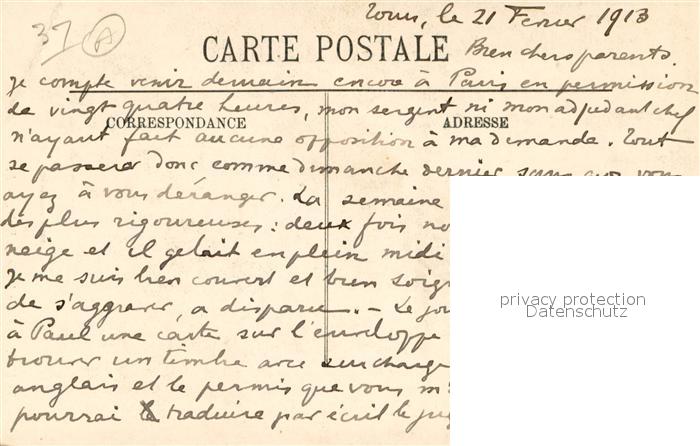 37 A
Tours, le 21 Fevrier 1913
CARTE POSTALE
Bien chers parents.
Je compte venir demain encore à Paris en permission
de vingt quatre heures, mon sergent ni mon adjudant chef
CORRESPONDANCE
ADRESSE
n'ayant fait aucune opposition à ma demande. Tout
se passera donc comme dimanche dernier sans que vous
ayez à vous déranger. La semaine
des plus rigoureuses: deux fois
neige et il gelait en plein midi
Je me suis bien couvert et bien
de s'aggraver, a disparu. – Le
à Paul une carte sur l'enveloppe
trouver un timbre avec surcharge
anglais et le permis que vous
pourrai traduire par écrit le
privacy protection
Datenschutz